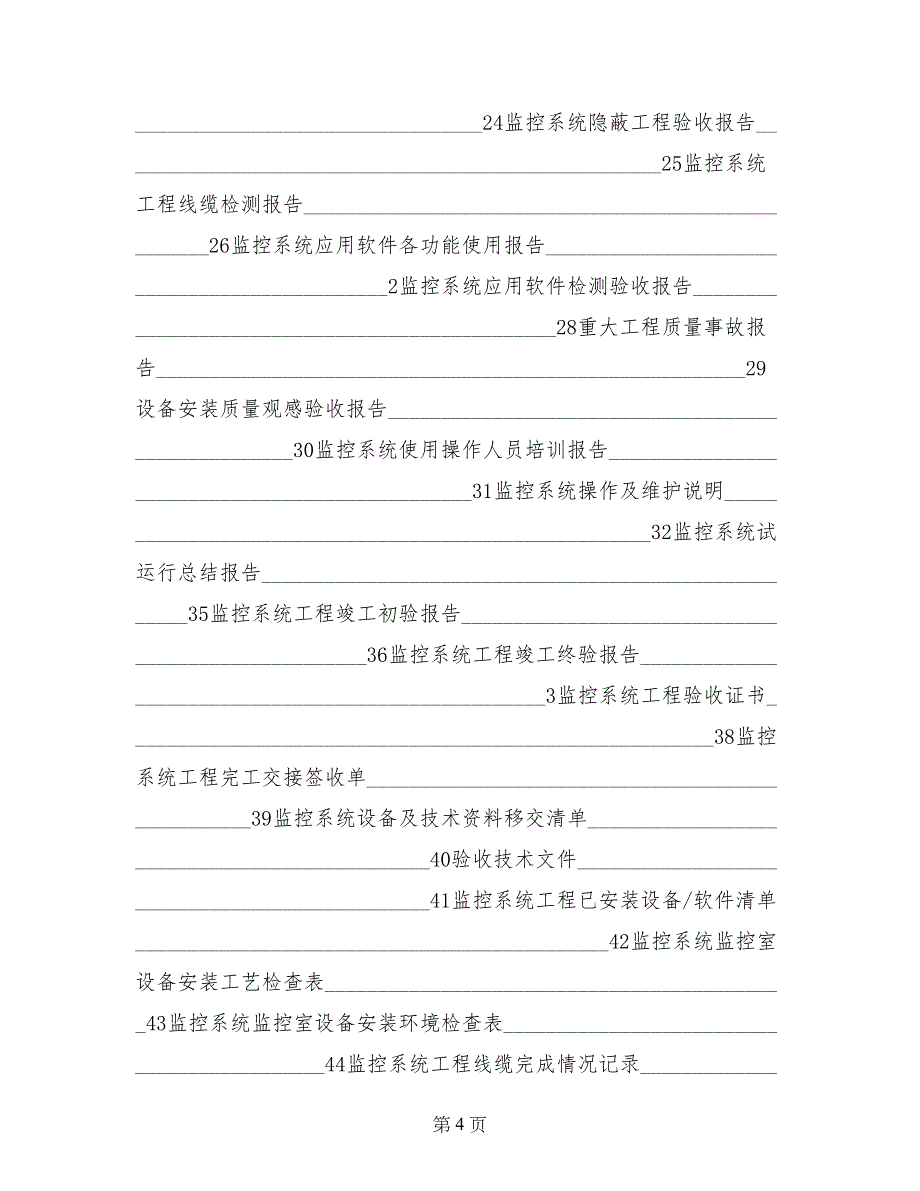 _________________________________24监控系统隐蔽工程验收报告__
__________________________________________________25监控系统
工程线缆检测报告_____________________________________________
_______26监控系统应用软件各功能使用报告______________________
________________________2监控系统应用软件检测验收报告________
________________________________________28重大工程质量事故报
告________________________________________________________29
设备安装质量观感验收报告_____________________________________
_______________30监控系统使用操作人员培训报告________________
________________________________31监控系统操作及维护说明_____
_________________________________________________32监控系统试
运行总结报告_________________________________________________
_____35监控系统工程竣工初验报告______________________________
______________________36监控系统工程竣工终验报告_____________
_______________________________________3监控系统工程验收证书_
_______________________________________________________38监控
系统工程完工交接签收单_______________________________________
___________39监控系统设备及技术资料移交清单__________________
____________________________40验收技术文件___________________
____________________________41监控系统工程已安装设备/软件清单
_____________________________________________42监控系统监控室
设备安装工艺检查表___________________________________________
_43监控系统监控室设备安装环境检查表__________________________
__________________44监控系统工程线缆完成情况记录_____________
第 4 页